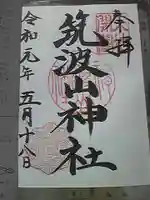 奉拝
筑波山神社
令和元年五月十八日